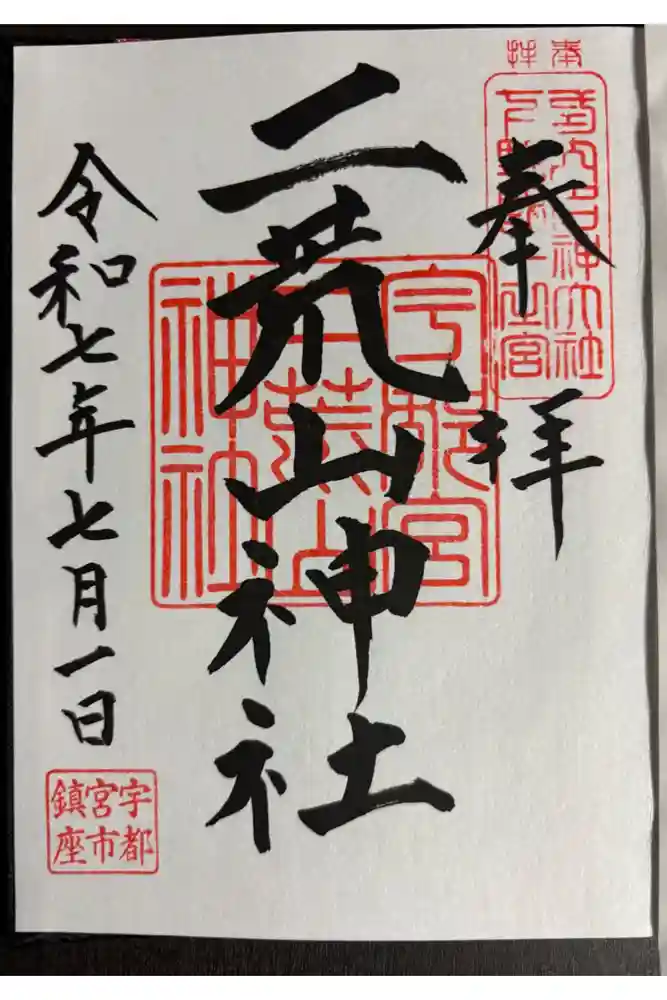 奉拝
式内名神大社
下野國一之宮
奉拝
二荒山神社
宇都宮
二荒山
神社
令和七年七月一日
宇都
宮市
鎮座